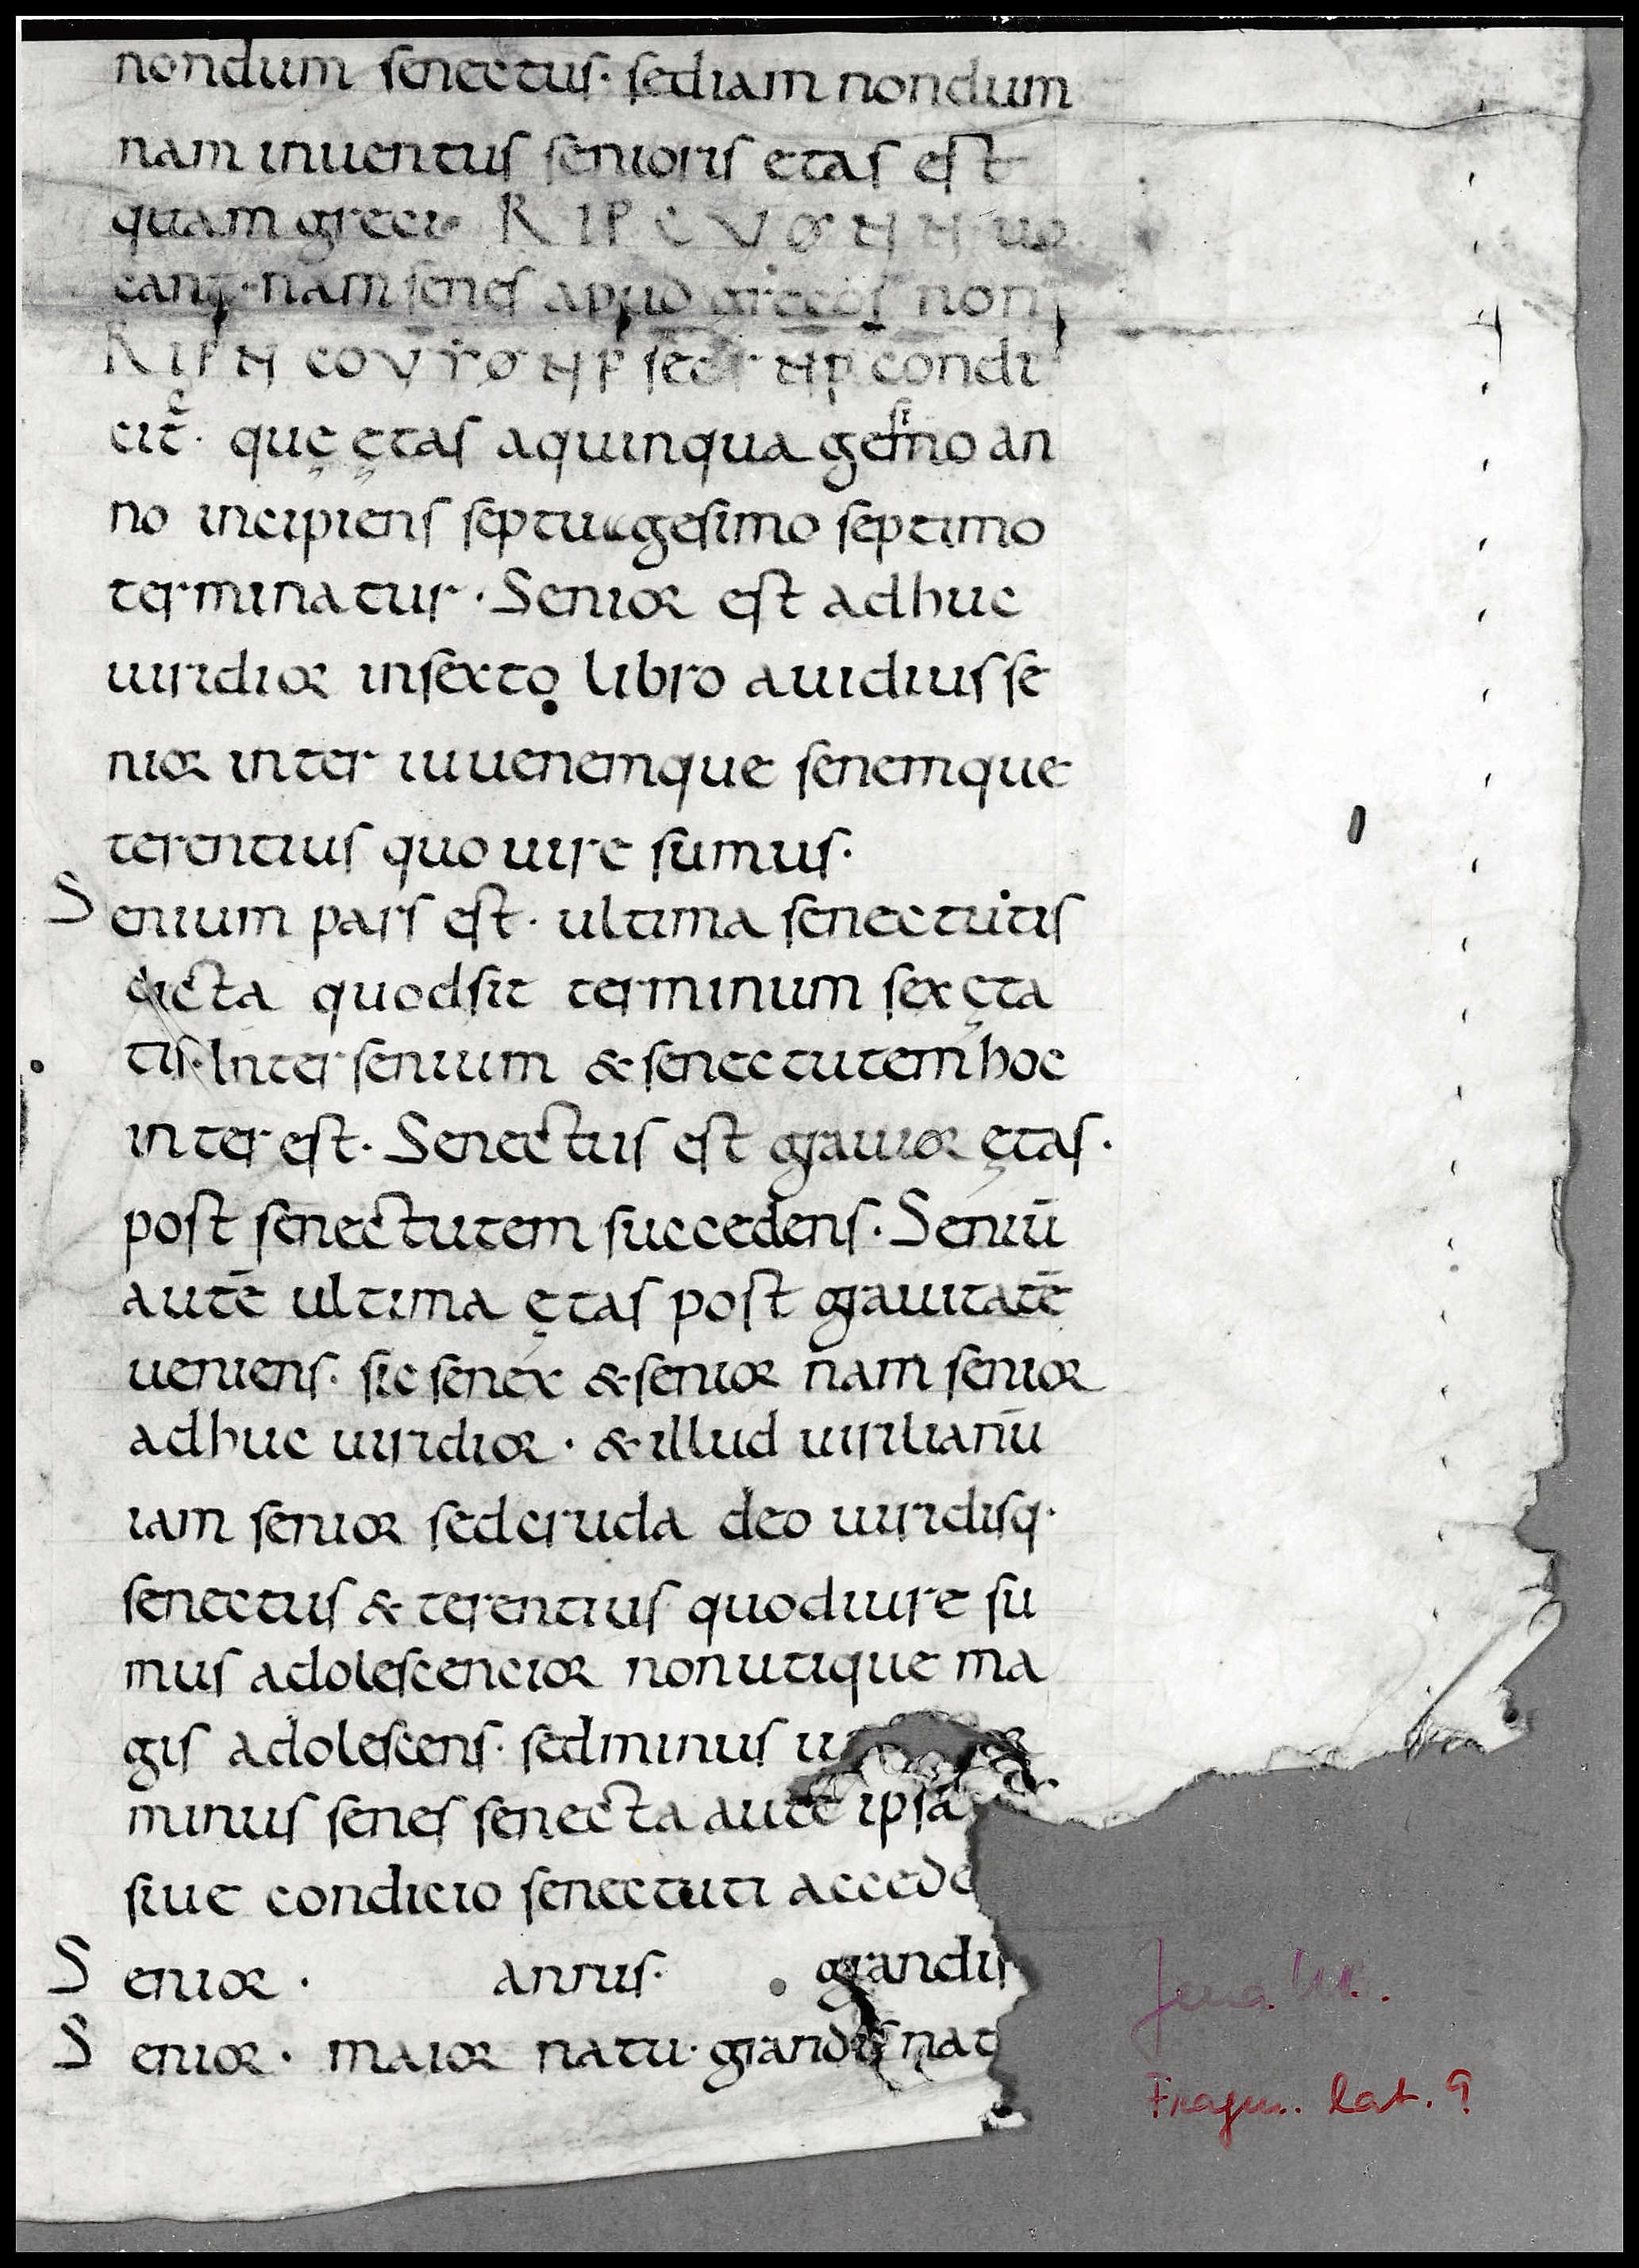 nondum senectus· sed iam nondum
nam inuentus senioris etas est
quam greci R I P C V Ø H H uo
cant·nam senes apud grecos non
R I P H C O V Y Ø H P sed HP condi
cit̄· quę ętas a quinqua gesimo an
no incipiens septuagesimo septimo
terminatur · Senior est adhuc
uiridior in sexto libro auidius se
nior inter iuuenemque senemque
terentius quo uire sumus·
Senium pars est· ultima senectutis
dicta quod sit terminum sex ęta
tis· Inter senium & senectutem hoc
inter est· Senectus est grauior ętas·
post senectutem succedens· Seniū
autē ultima ętas post grauitatē
ueniens· sic senex & senior nam senior
adhuc uiridior · & illud uirilianū
iam senior sed cruda deo uiridisq·
senectus & terentius quod iure su
mus adolescencior non utique ma
gis adolescens· sed minus
minus senes senecta autē ipsa
siue condicio senectuti accede
Senior · annus· grandis
Senior · maior natu· grandis nat
Jena UB.
Fragm. lat. 9